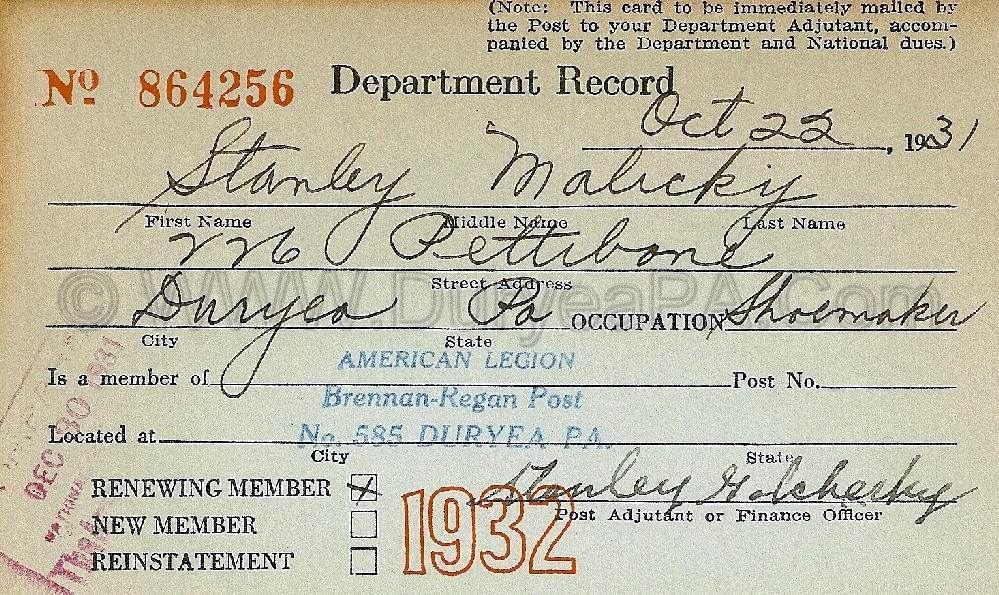 (Note: This card to be immediately mailed by
the Post to your Department Adjutant, accom-
panied by the Department and National dues.)
No 864256 Department Record
Oct 22, 1931
Stanley Malicky
First Name Middle Name Last Name
226 Pettibone
Street Address
© www.DuryeaPA.Com
Duryea Pa OCCUPATION Shoemaker
City State
AMERICAN LEGION
Is a member of Post No.
Brennan-Regan Post
Located at No. 585 DURYEA PA.
City State
DEC 30 1931
RENEWING MEMBER X
Stanley
1932
Post Adjutant or Finance Officer
NEW MEMBER
REINSTATEMENT